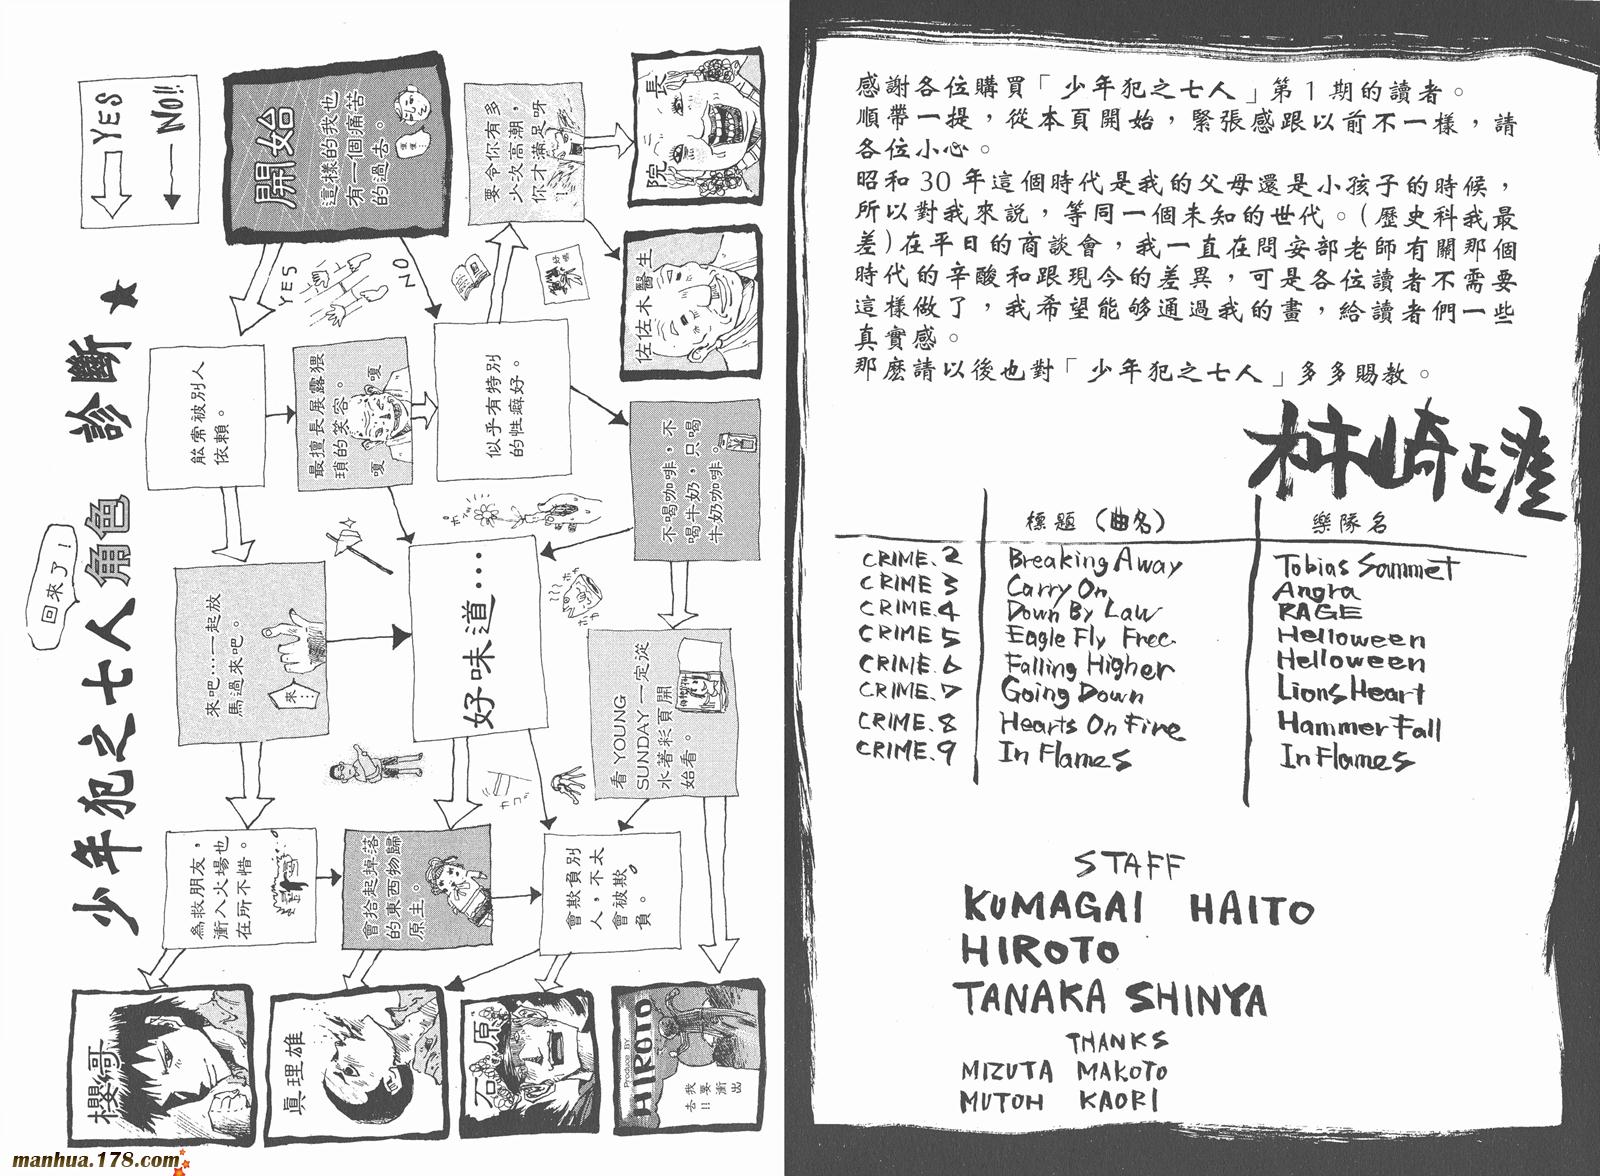 感謝各位購買「少年犯之七人」第1期的讀者。
順帶一提，從本頁開始，緊張感跟以前不一樣，請
各位小心。
昭和30年這個時代是我的父母還是小孩子的時候，
所以對我來說，等同一個未知的世代。（歷史科我最
差）在平日的商談會，我一直在問安部老師有關那個
時代的辛酸和跟現今的差異，可是各位讀者不需要
這樣做了，我希望能够通過我的畫，給讀者們一些
真實感。
那麼請以後也對「少年犯之七人」多多賜教。
柿崎正澄
標題（曲名） 樂隊名
CRIME.2 Breaking Away Tobias Sammet
CRIME 3 Carry On Angra
CRIME.4 Down By Law RAGE
CRIME 5 Eagle Fly Free. Helloween
CRIME.6 Falling Higher Helloween
CRIME.7 Going Down Lions Heart
CRIME.8 Hearts On Fire Hammer Fall
CRIME.9 In Flames In Flames
STAFF
KUMAGAI HAITO
HIROTO
TANAKA SHINYA
THANKS
MIZUTA MAKOTO
MUTOH KAORI
回來了！
少年犯之七人角色診斷★
YES
NO!!
開始
這樣的我也
有一個痛苦
的過去。
YES
NO
能常被別人
依賴。
最擅長展露猥
瑣的笑容。
嗄
嗄
似乎有特別
的性癖好。
要令你有多
少次高潮，
你才滿足呀
！
院長
佐佐木醫生
不喝咖啡，不
喝牛奶，只喝
牛奶咖啡。
來吧…一起放
馬過來吧。
來…
好味道…
看YOUNG
SUNDAY一定從
水著彩頁開
始看。
為救朋友，
衝入火場也
在所不惜。
會拾起掉落
的東西物歸
原主。
會欺負別
人，不太
會被欺
負。
櫻哥
真理雄
石原
Produce BY
HIROTO
我要衝出
去!!
manhua.178.com